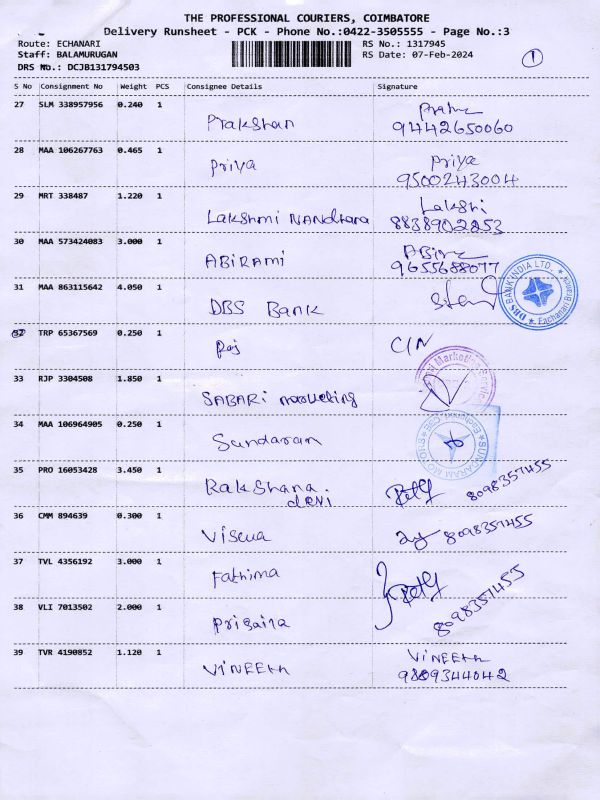 THE PROFESSIONAL COURIERS, COIMBATORE
Delivery Runsheet - PCK - Phone No.:0422-3505555 - Page No.:3
Route: ECHANARI
Staff: BALAMURUGAN
DRS No.: DCJB131794503
RS No.: 1317945
RS Date: 07-Feb-2024
1
S No Consignment No Weight PCS Consignee Details Signature
27 SLM 338957956 0.240 1 Prakshan
9442650060
28 MAA 106267763 0.465 1 Priya Priya
9500243004
29 MRT 338487 1.220 1 Lakshmi Nandhana Lakshi
8838902853
30 MAA 573424083 3.000 1 ABIRAMI
9655688077
31 MAA 863115642 4.050 1 DBS Bank
DBS BANK INDIA LTD. Eachanari Branch
32 TRP 65367569 0.250 1 Raj C/N
33 RJP 3304508 1.850 1 SABARi marketing
Marketing Service
34 MAA 106964905 0.250 1 Sundaram
SUNDARAM MOTORS
35 PRO 16053428 3.450 1 Rakshana. devi 8098357455
36 CMM 894639 0.300 1 Viswa 8098357455
37 TVL 4356192 3.000 1 Fathima
38 VLI 7013502 2.000 1 8098357455
39 TVR 4190852 1.120 1 VINEETH VINEETH
9889344042